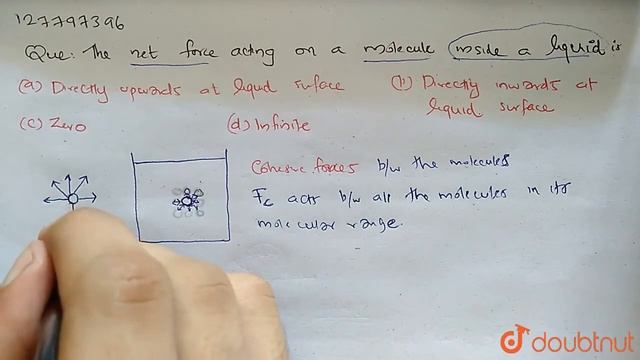 127797396
Que: The net force acting on a molecule inside a liquid is
(a) Directly upwards at liqud surface (b) Directly inwards at
liquid surface
(c) Zero (d) Infinite
Cohesive forces b/w the molecules
Fc acts b/w all the molecules in its
molecular range.
doubtnut